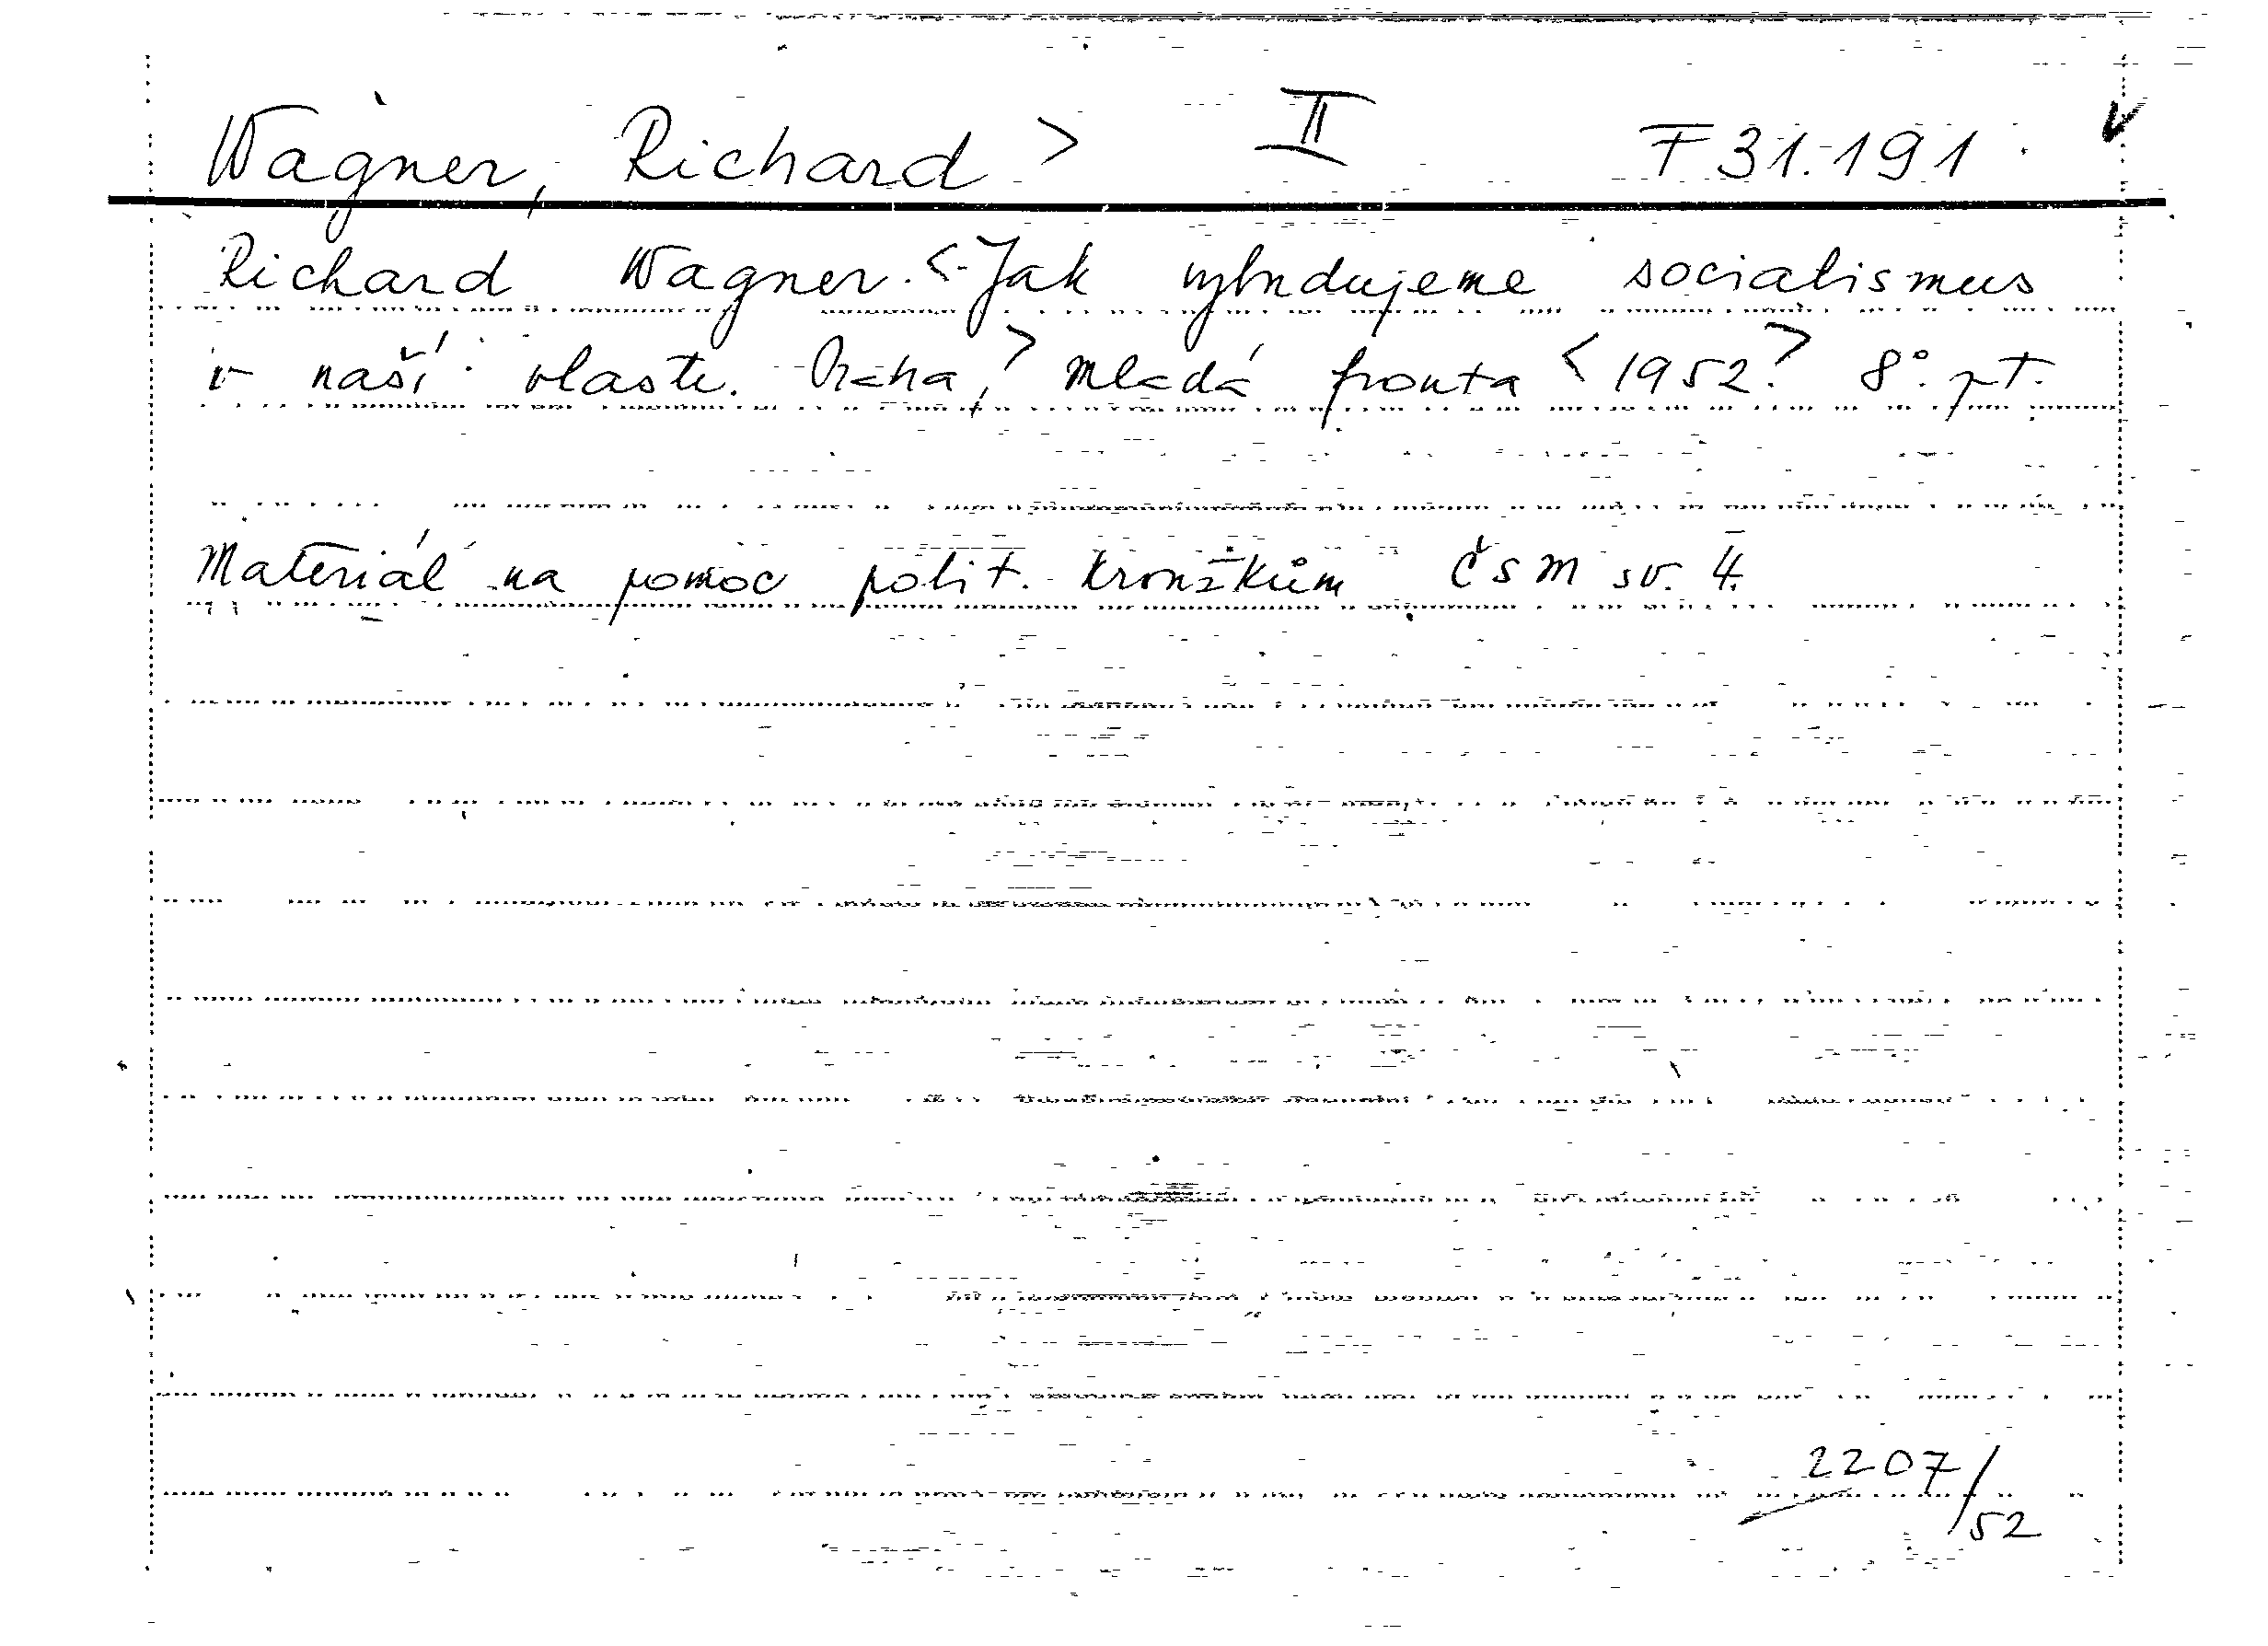 Wagner, Richard > II F 31.191 v
Richard Wagner. <Jak vybudujeme socialismus
v naší vlasti. Praha,> Mladá fronta <1952> 8°. pt.
Materiál na pomoc polit. kroužkům ČSM sv. 4.
2207/52